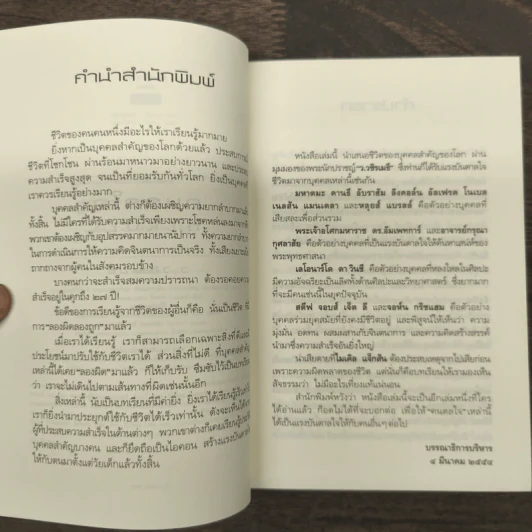 คำนำสำนักพิมพ์
ชีวิตของคนคนหนึ่งมีอะไรให้เราเรียนรู้มากมาย
ยิ่งหากเป็นบุคคลสำคัญของโลกด้วยแล้ว ประสบการณ์
ชีวิตที่โชกโชน ผ่านร้อนมาหนาวมาอย่างยาวนาน และประสบ
ความสำเร็จสูงสุด จนเป็นที่ยอมรับกันทั่วโลก ยิ่งเป็นบุคคลที่
เราควรเรียนรู้อย่างมาก
บุคคลสำคัญเหล่านี้ ต่างก็ต้องเผชิญความยากลำบากมาแล้ว
ทั้งสิ้น ไม่มีใครที่ได้รับความสำเร็จเพียงเพราะโชคหล่นลงมาจากฟ้า
พวกเขาต้องเผชิญกับอุปสรรคมากมายนานัปการ ทั้งความยากลำบาก
ในการดำเนินการให้ความคิดจินตนาการเป็นจริง ทั้งเสียงเยาะเย้ย
ถากถางจากผู้คนในสังคมรอบข้าง
บางคนกว่าจะสำเร็จสมความปรารถนา ต้องรอคอยความ
สำเร็จอยู่ในคุกถึง ๒๗ ปี!
ข้อดีของการเรียนรู้จากชีวิตของผู้อื่นก็คือ นั่นเป็นชีวิต
การ "ลองผิดลองถูก" มาแล้ว
เมื่อเราได้เรียนรู้ เราก็สามารถเลือกเฉพาะสิ่งที่ดี
ประโยชน์มาปรับใช้กับชีวิตเราได้ ส่วนสิ่งที่ไม่ดี ที่บุคคลสำคัญ
เหล่านี้ได้เคย "ลองผิด" มาแล้ว ก็ให้เก็บรับ ซึมซับไว้เป็นบทเรียน
ว่า เราจะไม่เดินไปตามเส้นทางที่ผิดเช่นนั้นอีก
สิ่งเหล่านี้ นับเป็นบทเรียนที่มีค่ายิ่ง ยิ่งเราได้เรียนรู้
เราก็ยิ่งนำมาประยุกต์ใช้กับชีวิตได้เร็วเท่านั้น ดังจะเห็นได้
ผู้ที่ประสบความสำเร็จในด้านต่างๆ พวกเขาต่างก็เคยเรียนรู้
บุคคลสำคัญบางคน และก็ยึดถือเป็นไอดอน สร้างแรงบันดาล
ให้กับตนมาตั้งแต่วัยเด็กแล้วทั้งสิ้น
หนังสือเล่มนี้ นำเสนอชีวิตของบุคคลสำคัญของโลก ผ่าน
มุมมองของพระนักปราชญ์ "ว.วชิรเมธี" ซึ่งท่านก็ได้รับแรงบันดาลใจ
ชีวิตมาจากบุคคลเหล่านี้เช่นกัน
มหาตมะ คานธี อับราฮัม ลิงคอล์น อัลเฟรด โนเบล
เนลสัน แมนเดลา และหลุยส์ เบรลล์ คือตัวอย่างบุคคลที่
เสียสละเพื่อส่วนรวม
พระเจ้าอโศกมหาราช ดร.อัมเพทการ์ และอาจารย์กรุณา
กุศลาสัย คือตัวอย่างบุคคลที่เป็นแรงบันดาลใจให้ค้นหาศาสน์ของ
พระพุทธศาสนา
เลโอนาร์โด ดา วินชี คือตัวอย่างบุคคลที่หลงใหลในศิลปะ
มีความอัจฉริยะเป็นเลิศทั้งด้านศิลปะและวิทยาศาสตร์ ซึ่งยาก
ที่จะมีคนเช่นนี้ในยุคปัจจุบัน
สตีฟ จอบส์ เจ็ต ลี และจอห์น กริชแฮม คือตัวอย่าง
บุคคลร่วมยุคสมัยที่ยังคงมีชีวิตอยู่ และพิสูจน์ให้เห็นว่า ความ
มุ่งมั่น อดทน ผสมผสานกับจินตนาการ และความคิดสร้างสรรค์
นำมาซึ่งความสำเร็จอันยิ่งใหญ่
น่าเสียดายที่ไมเคิล แจ็กสัน ต้องประสบเหตุจากไปเสียก่อน
เพราะความผิดพลาดของชีวิต แต่นั่นก็คือบทเรียนให้เรามองเห็น
สัจธรรมว่า ไม่มีอะไรเที่ยงแท้แน่นอน
สำนักพิมพ์หวังว่า หนังสือเล่มนี้จะเป็นอีกเล่มหนึ่งที่ใคร
ได้อ่านแล้ว ก็อดไม่ได้ที่จะบอกต่อ เพื่อให้ "คนดลใจ" เหล่านี้
ได้เป็นแรงบันดาลใจให้กับคนอื่นๆ ต่อไป
บรรณาธิการบริหาร
๔ มีนาคม ๒๕๕๔